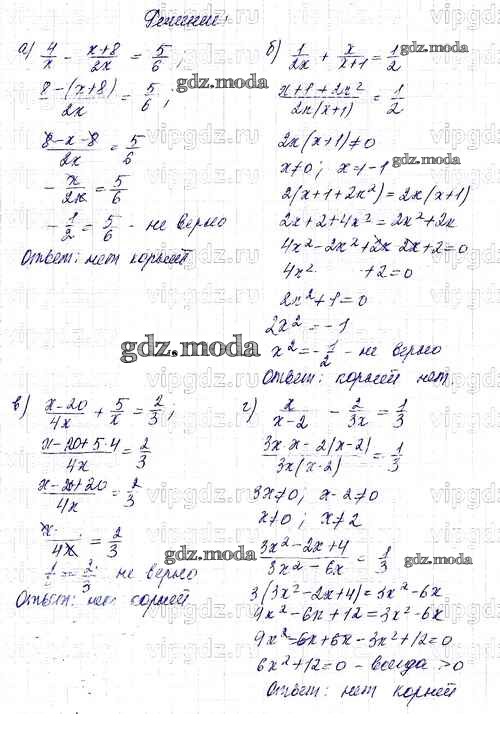 Решение:
а) 4/x − (x+8)/2x = 5/6 ;
(8−(x+8))/2x = 5/6 ;
(8−x−8)/2x = 5/6
− x/2x = 5/6
− 1/2 = 5/6 - не верно
Ответ: нет корней
б) 1/2x + x/(x+1) = 1/2
(x+1+2x²)/2x(x+1) = 1/2
2x(x+1)≠0
x≠0; x≠−1
2(x+1+2x²)=2x(x+1)
2x+2+4x²=2x²+2x
4x²−2x²+2x−2x+2=0
4x² +2=0
2x²+1=0
2x²=−1
x²=−1/2 - не верно
Ответ: корней нет.
в) (x−20)/4x + 5/x = 2/3 ;
(x−20+5·4)/4x = 2/3
(x−20+20)/4x = 2/3
x/4x = 2/3
1/4 = 2/3 не верно
Ответ: нет корней
г) x/(x−2) − 2/3x = 1/3
(3x·x−2(x−2))/3x(x−2) = 1/3
3x≠0; x−2≠0
x≠0; x≠2
(3x²−2x+4)/(3x²−6x) = 1/3
3(3x²−2x+4)=3x²−6x
9x²−6x+12=3x²−6x
9x²−6x+6x−3x²+12=0
6x²+12=0 - всегда >0
Ответ: нет корней
gdz.moda
vipgdz